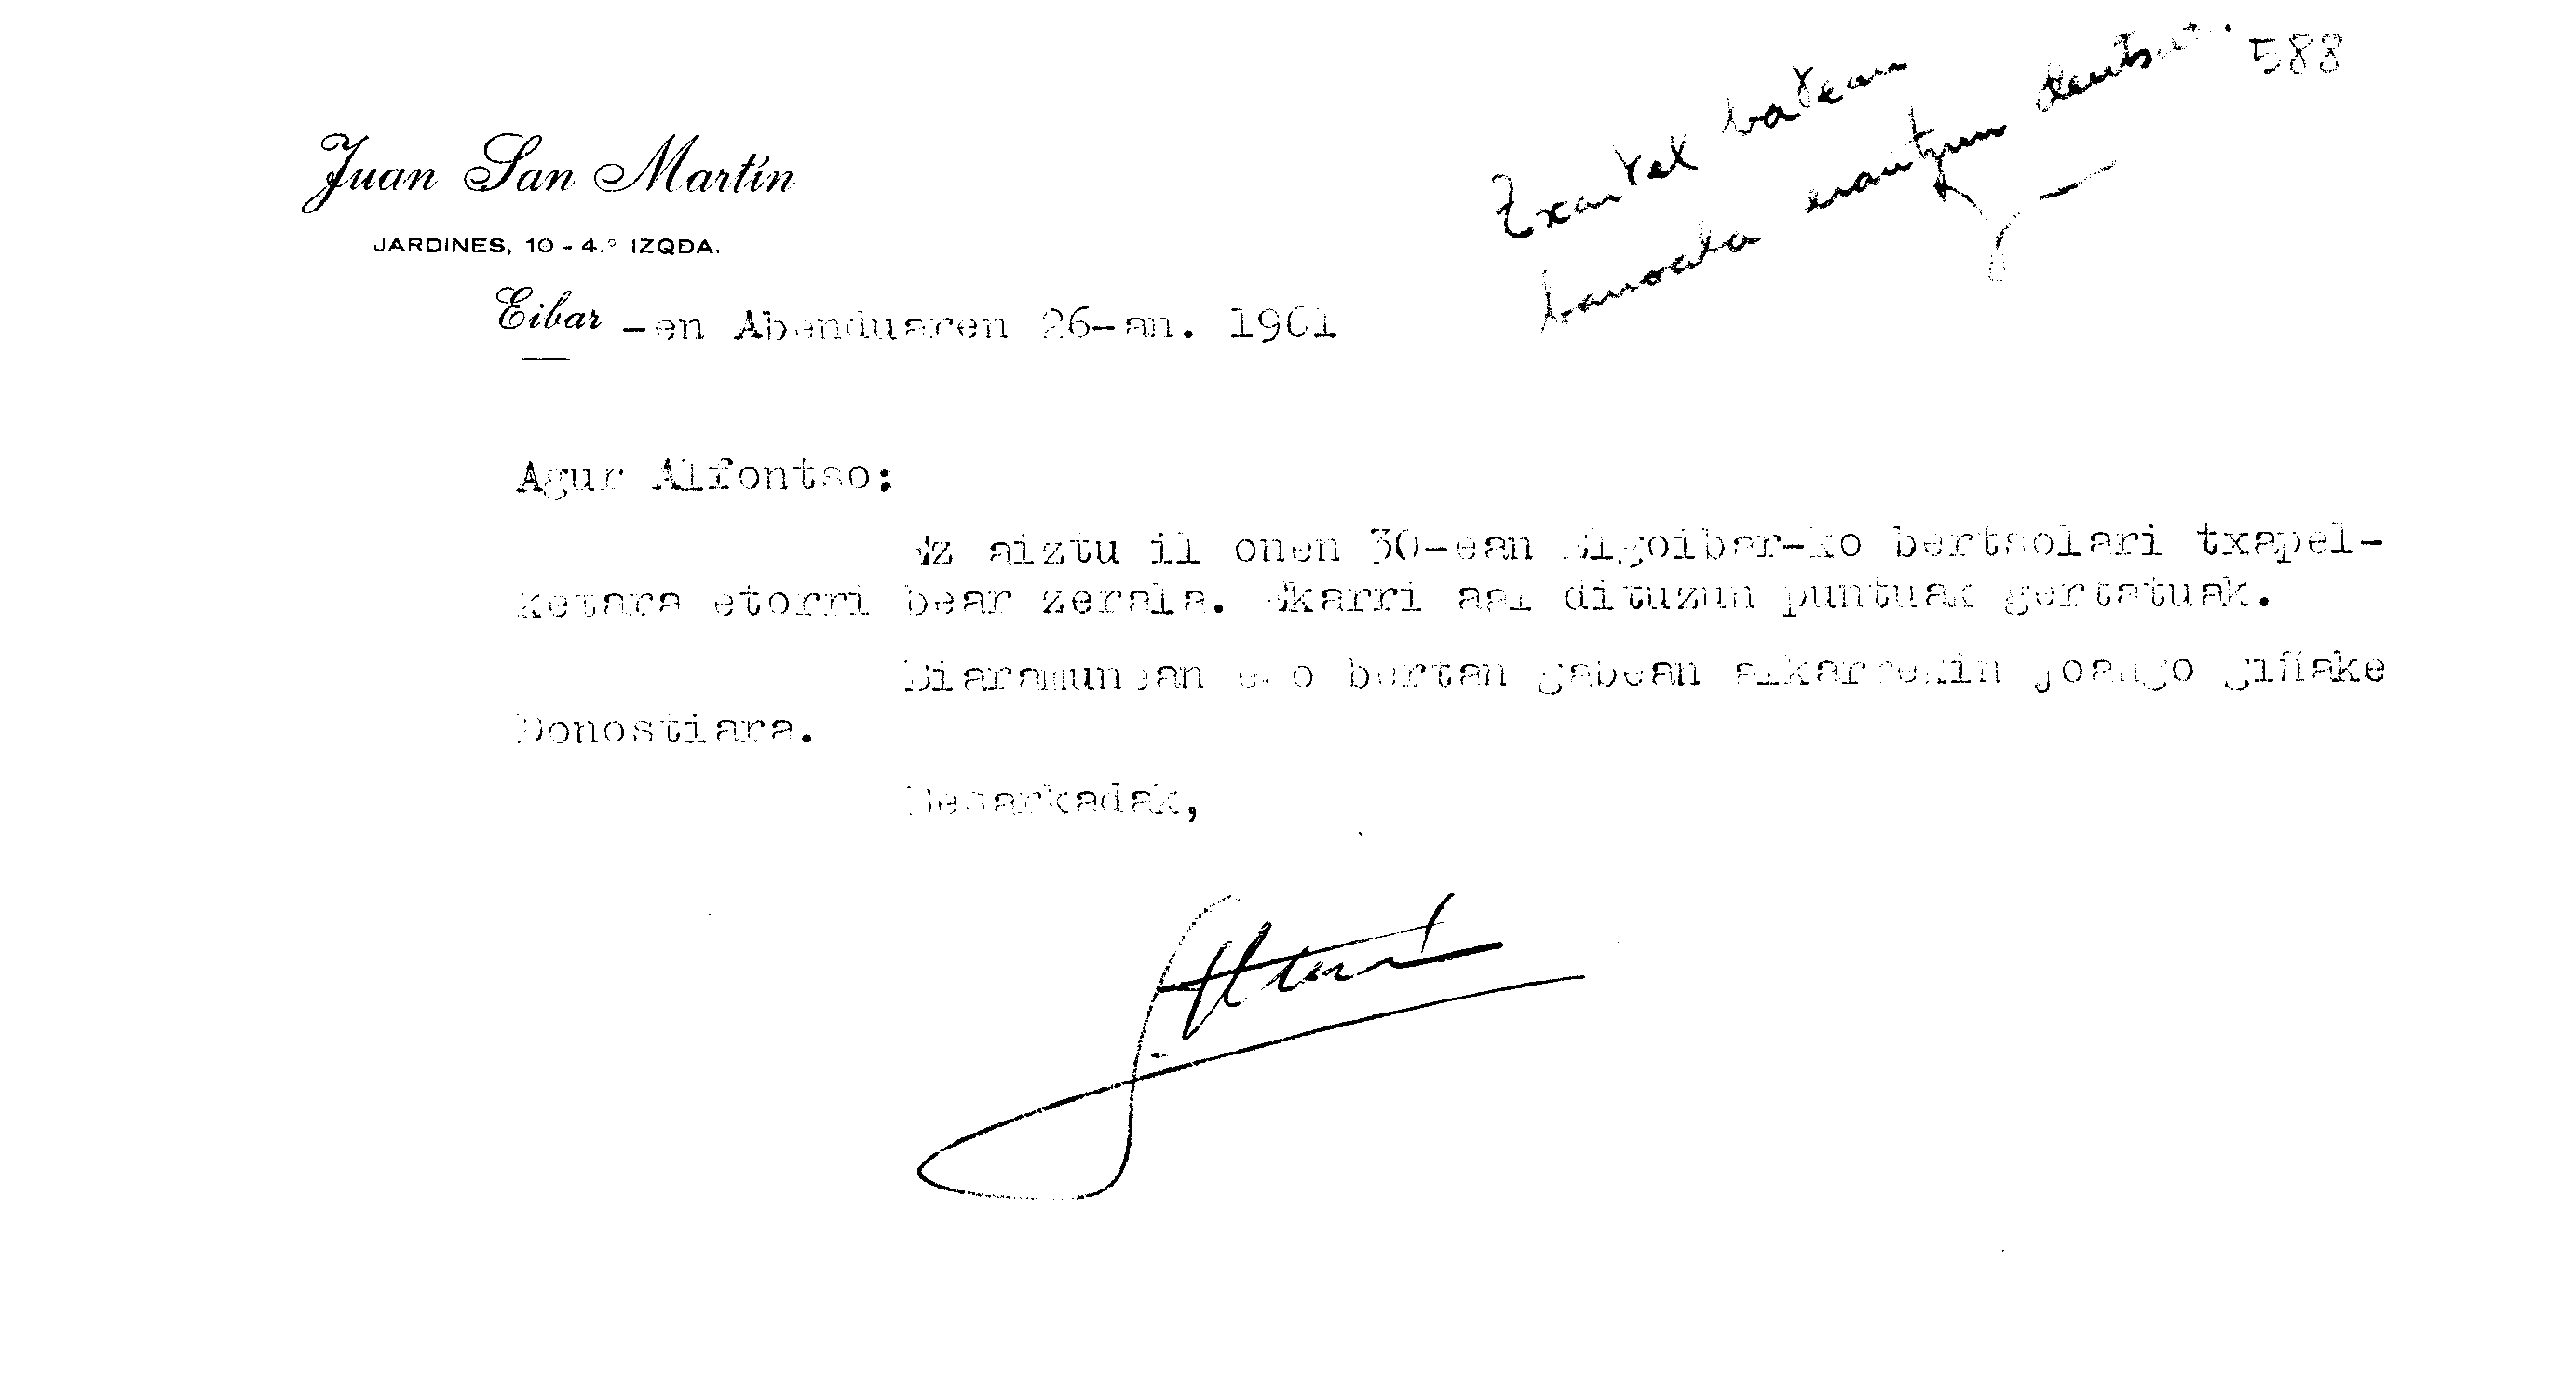 588
Txartel batean
banoala erantzun deutsat.
Juan San Martín
JARDINES, 10 - 4.º IZQDA.
Eibar -en Abenduaren 26-an. 1961
Agur Alfontso:
Ez aiztu il onen 30-ean Elgoibar-ko bertsolari txapel-
ketara etorri bear zerala. Ekarri aal dituzun puntuak gertatuak.
Biaramunean edo bertan gabean alkarrekin joango giñake
Donostiara.
Besarkadak,